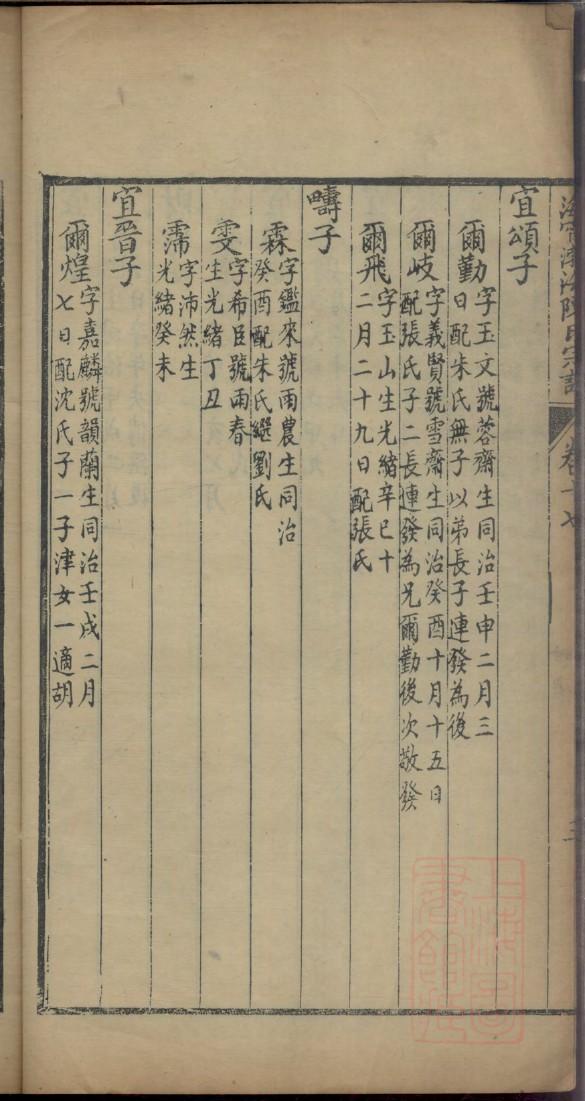 海寧渤海陳氏宗譜
卷十七
宜頌子
爾勤字玉文號蓉齋生同治壬申二月三
日配朱氏無子以弟長子連發為後
爾岐字義賢號雪齋生同治癸酉十月十五日
配張氏子二長連發為兄爾勤後次敬發
爾飛字玉山生光緒辛巳十
二月二十九日配張氏
疇子
霖字鑑來號雨農生同治
癸酉配朱氏繼劉氏
雯字希臣號雨春
生光緒丁丑
霈字沛然生
光緒癸未
宜晉子
爾煌字嘉麟號韻蘭生同治壬戌二月
七日配沈氏子一子津女一適胡
上海圖書館藏